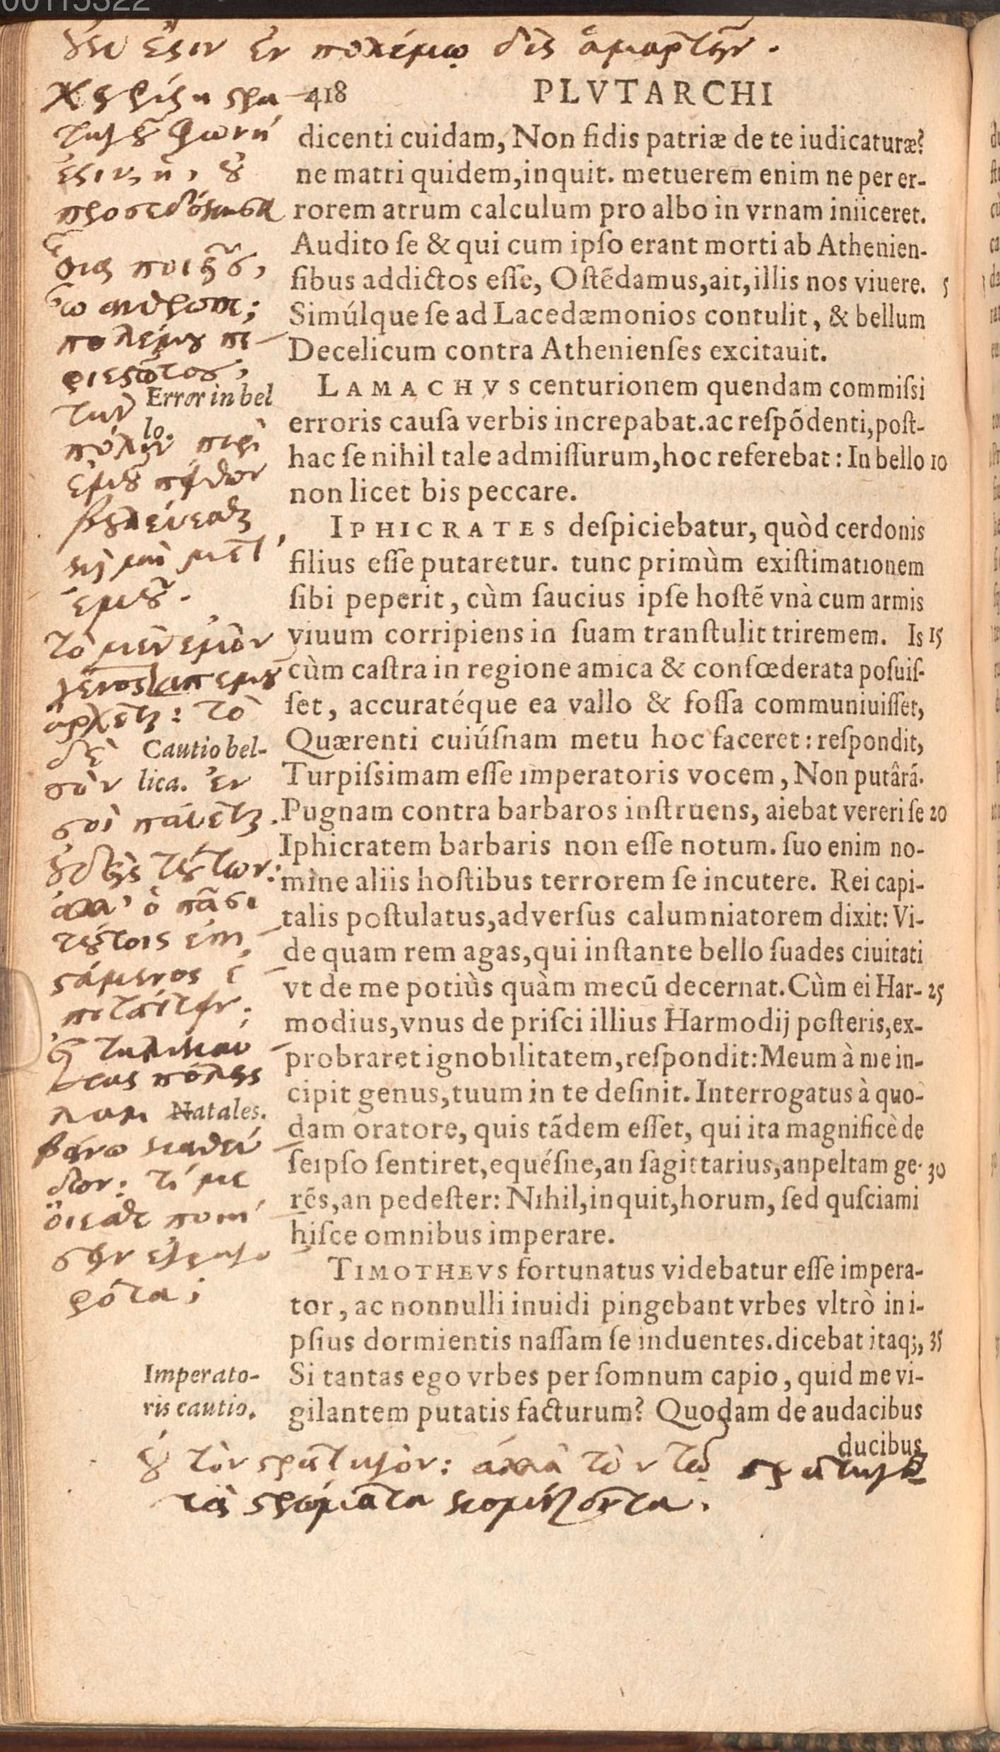 00115322
οὐκ ἔστιν ἐν πολέμῳ δὶς ἁμαρτεῖν.
418 PLVTARCHI
dicenti cuidam, Non fidis patriæ de te iudicaturæ?
ne matri quidem, inquit. metuerem enim ne per er-
rorem atrum calculum pro albo in vrnam iniiceret.
Audito ſe & qui cum ipſo erant morti ab Athenien-
ſibus addictos eſſe, Oſtẽdamus, ait, illis nos viuere. 5
Simúlque ſe ad Lacedæmonios contulit, & bellum
Decelicum contra Athenienſes excitauit.
LAMACHVS centurionem quendam commiſsi
erroris cauſa verbis increpabat. ac reſpõdenti, poſt-
hac ſe nihil tale admiſſurum, hoc referebat: In bello 10
non licet bis peccare.
IPHICRATES deſpiciebatur, quòd cerdonis
filius eſſe putaretur. tunc primùm exiſtimationem
ſibi peperit, cùm ſaucius ipſe hoſtẽ vnà cum armis
viuum corripiens in ſuam tranſtulit triremem. Is 15
cùm caſtra in regione amica & confœderata poſuiſ-
ſet, accuratéque ea vallo & foſſa communiuiſſet,
Quærenti cuiúſnam metu hoc faceret: reſpondit,
Turpiſsimam eſſe imperatoris vocem, Non putârã.
Pugnam contra barbaros inſtruens, aiebat vereri ſe 20
Iphicratem barbaris non eſſe notum. ſuo enim no-
mine aliis hoſtibus terrorem ſe incutere. Rei capi-
talis poſtulatus, adverſus calumniatorem dixit: Vi-
de quam rem agas, qui inſtante bello ſuades ciuitati
vt de me potiùs quàm mecũ decernat. Cùm ei Har- 25
modius, vnus de priſci illius Harmodij poſteris, ex-
probraret ignobilitatem, reſpondit: Meum à me in-
cipit genus, tuum in te deſinit. Interrogatus à quo-
dam oratore, quis tãdem eſſet, qui ita magnificè de
ſeipſo ſentiret, equéſne, an ſagittarius, an peltam ge- 30
rẽs, an pedeſter: Nihil, inquit, horum, ſed qui ſciam
hiſce omnibus imperare.
TIMOTHEVS fortunatus videbatur eſſe impera-
tor, ac nonnulli inuidi pingebant vrbes vltrò in i-
pſius dormientis naſſam ſe induentes. dicebat itaq;, 35
Si tantas ego vrbes per ſomnum capio, quid me vi-
gilantem putatis facturum? Quodam de audacibus
ducibus
Error in bel
lo.
Cautio bel-
lica.
Natales.
Imperato-
ris cautio.
τὸ μὲν ἐμὸν
γένος ἀπ' ἐμοῦ
ἄρχεται: τὸ
δὲ
σὸν ἐν
σοὶ παύεται.
οὐδεὶς τούτων:
ἀλλ' ὁ πᾶσι
τούτοις ἐπι
στάμενος ἐ
πιτάττειν.
οὐ τὸν στρατηγὸν: ἀλλὰ τὸν τῷ στρατηγῷ
τὰ στρώματα κομίζοντα.